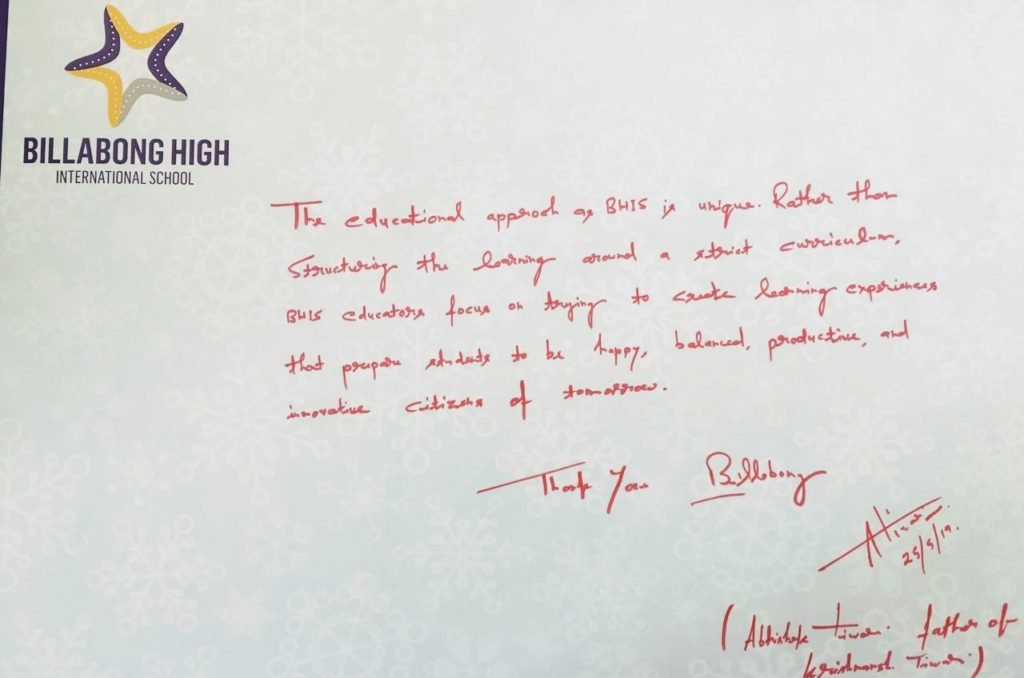 BILLABONG HIGH
INTERNATIONAL SCHOOL
The educational approach as BHIS is unique. Rather than
Structuring the learning around a strict curriculum,
BHIS educators focus on trying to create learning experiences
that prepare students to be happy, balanced, productive, and
innovative citizens of tomorrow.
Thank You Billabong
ATiwari
25/5/19.
(Abhishek Tiwari father of
Krishnansh Tiwari)